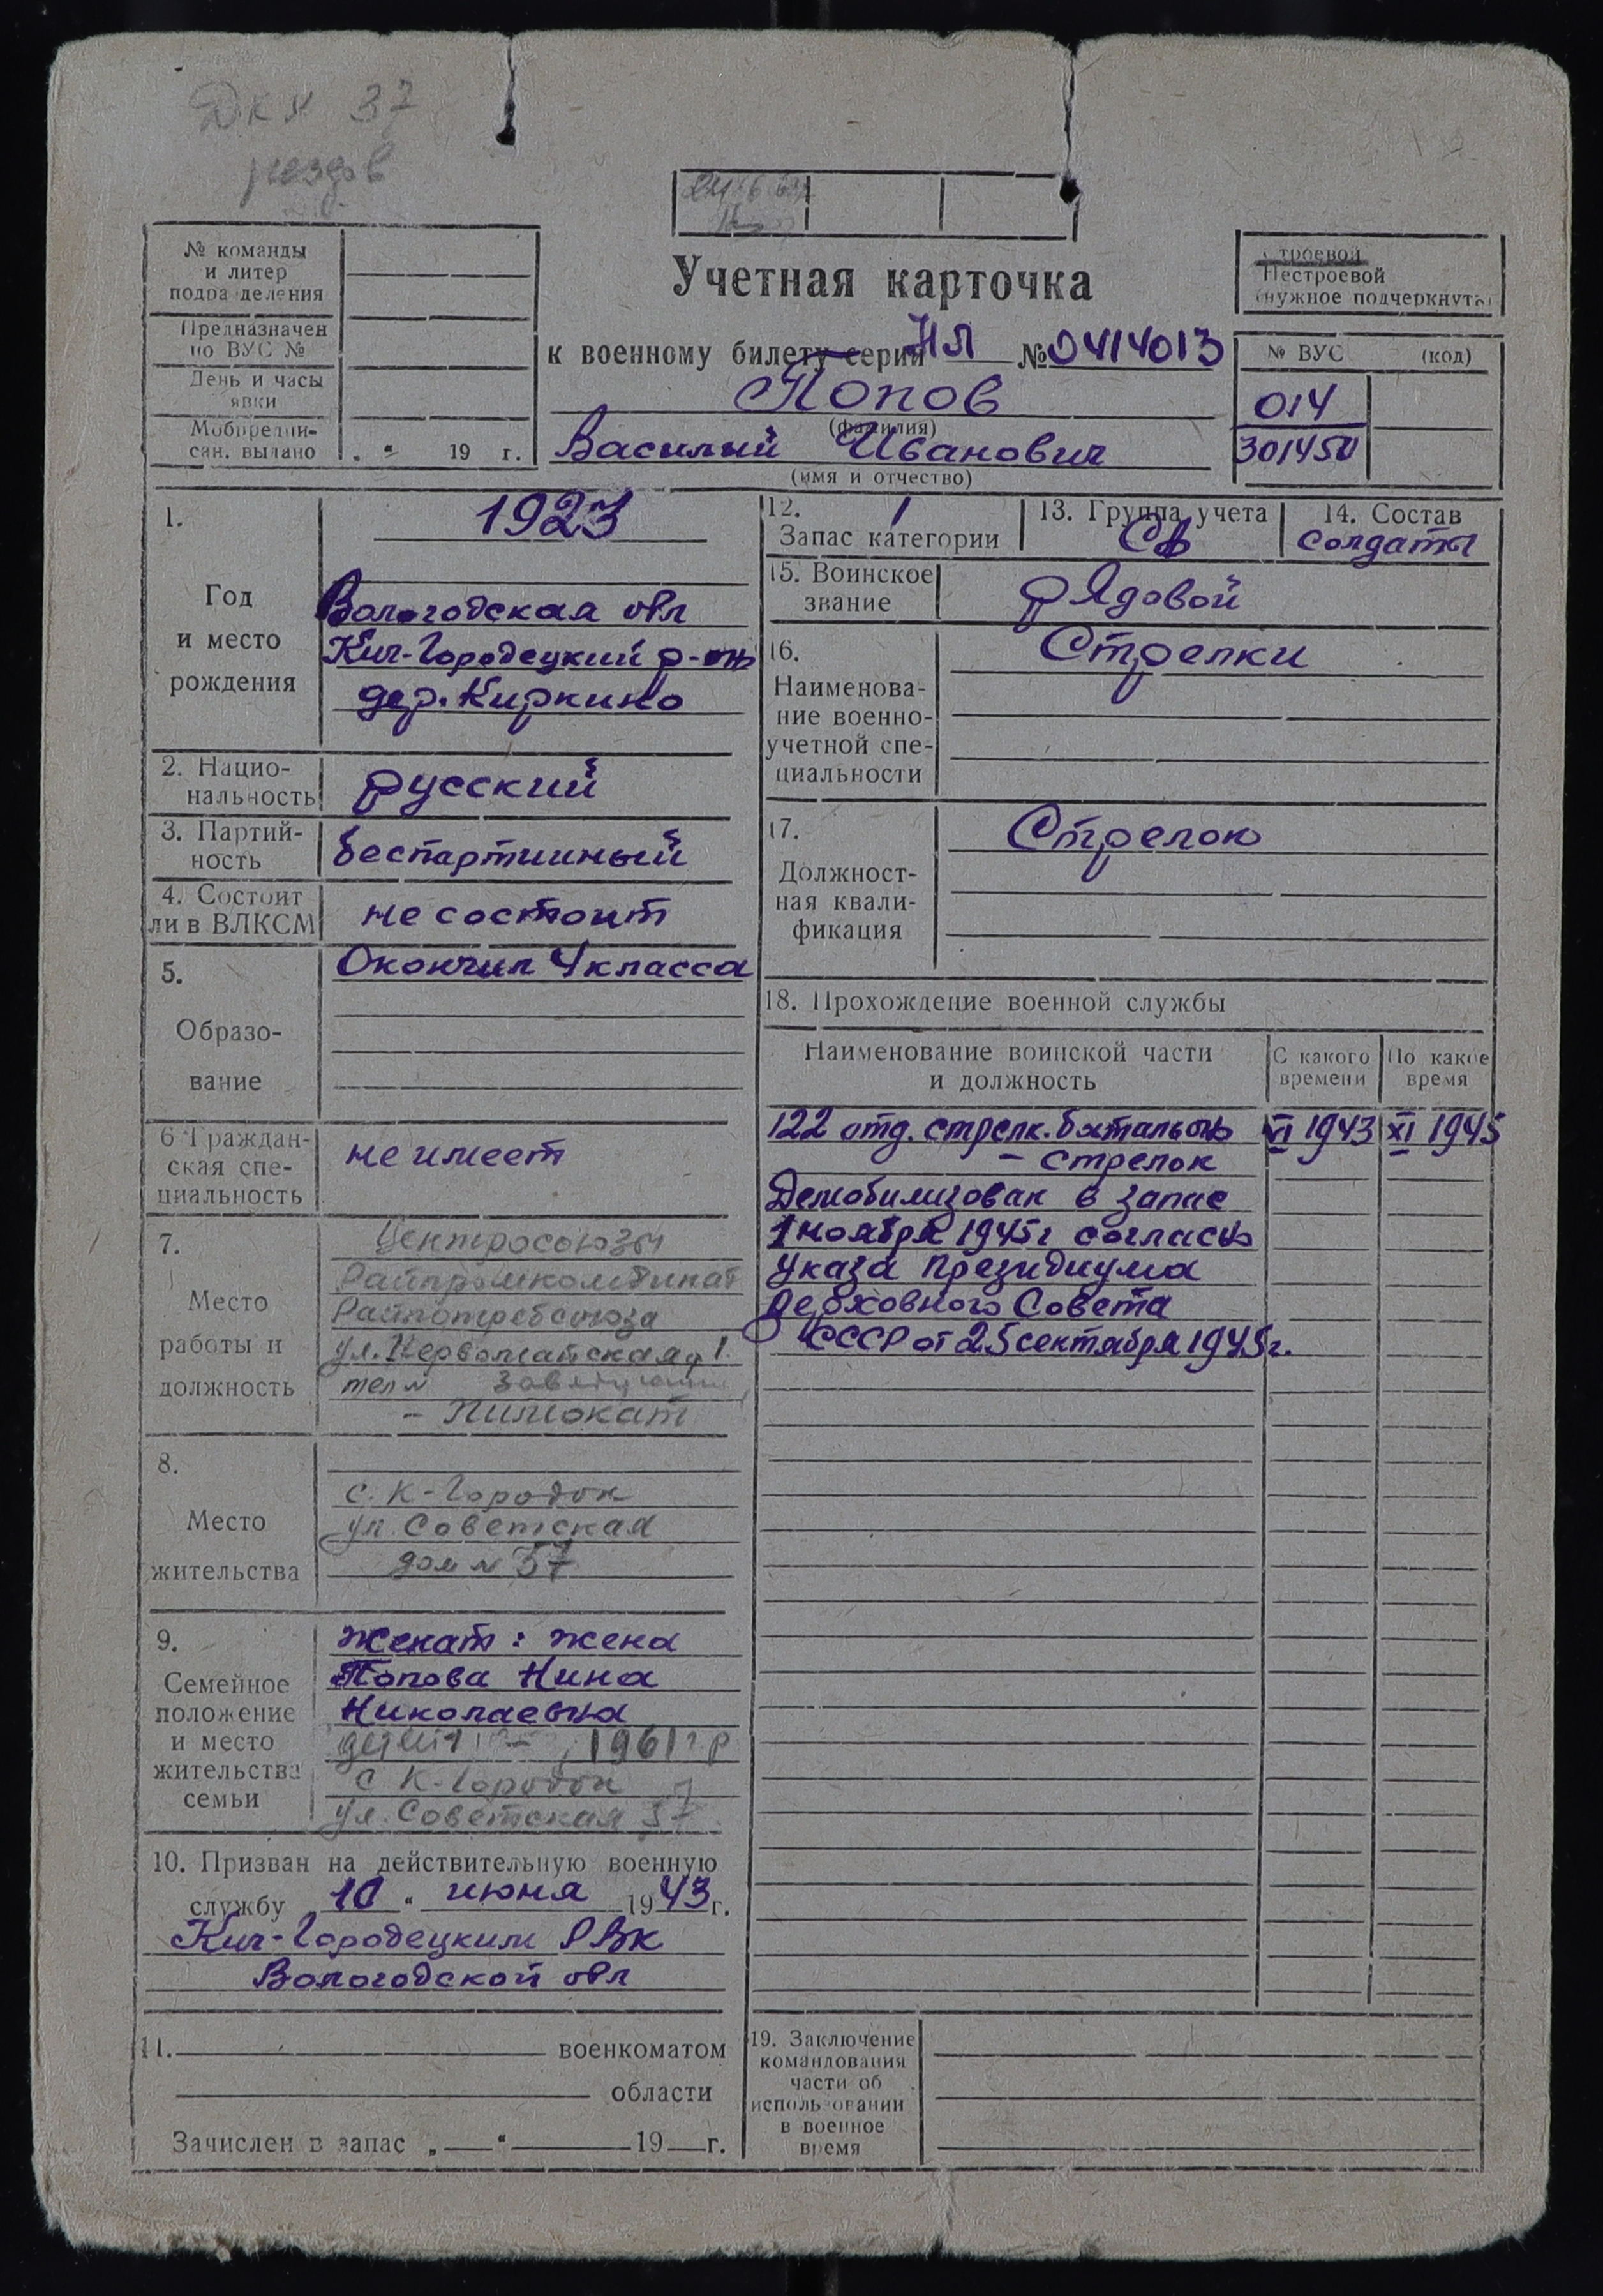 ДКУ 37
№ команды
и литер
подразделения
Предназначен
по ВУС №
День и часы
явки
Мобпредпи-
сан. выдано
„ “ 19 г.
Учетная карточка
к военному билету серии НЛ № 0414013
Попов
(фамилия)
Василий Иванович
(имя и отчество)
Строевой
Нестроевой
(нужное подчеркнуть)
№ ВУС (код)
014
301450
1.
Год
и место
рождения
1923
Вологодская обл
Кич-Городецкий р-он
дер. Киркино
2. Нацио-
нальность
русский
3. Партий-
ность
беспартийный
4. Состоит
ли в ВЛКСМ
не состоит
5.
Образо-
вание
Окончил 4 класса
6 Граждан-
ская спе-
циальность
не имеет
7.
Место
работы и
должность
Центросоюзы
Райпромкомбинат
Райпотребсоюза
ул. Первомайская д 1.
тел №
- Пимокат
8.
Место
жительства
с. К-Городок
ул. Советская
дом № 37
9.
Семейное
положение
и место
жительства
семьи
Женат: жена
Попова Нина
Николаевна
дети 1961 г р
с К-Городок
ул. Советская 37
10. Призван на действительную военную
службу 10 “ июня 1943 г.
Кич-Городецким РВК
Вологодской обл
11. военкоматом
области
Зачислен в запас „ “ 19 г.
12. 1
Запас категории
13. Группа учета
СА
14. Состав
солдаты
15. Воинское
звание
рядовой
16.
Наименова-
ние военно-
учетной спе-
циальности
Стрелки
17.
Должност-
ная квали-
фикация
Стрелок
18. Прохождение военной службы
Наименование воинской части
и должность
С какого
времени
По какое
время
122 отд. стрелк. батальон VI 1943 XI 1945
- стрелок
Демобилизован в запас
1 ноября 1945г согласно
Указа Президиума
Верховного Совета
СССР от 25 сентября 1945г.
19. Заключение
командования
части об
использовании
в военное
время